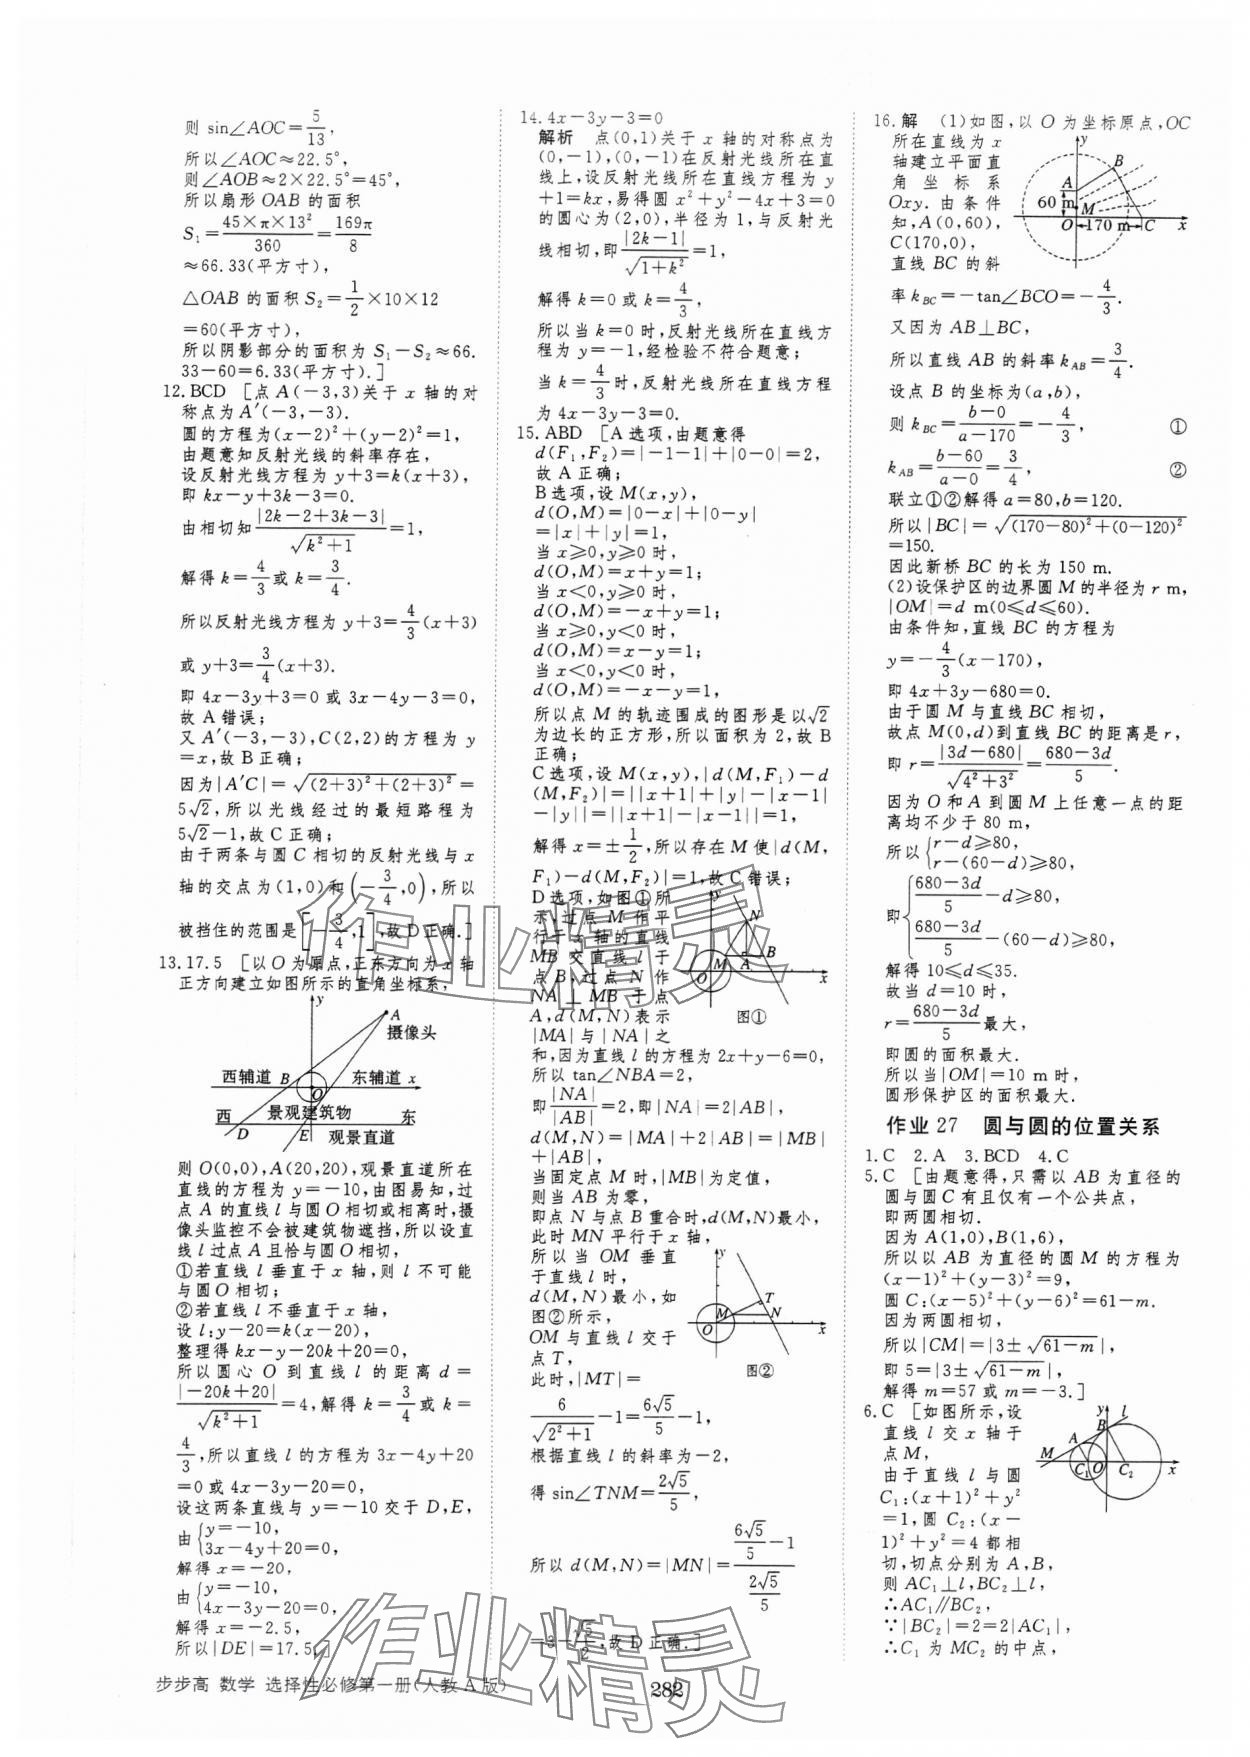 则 sin∠AOC=5/13,
所以∠AOC≈22.5°,
则∠AOB≈2×22.5°=45°,
所以扇形 OAB 的面积
S₁=(45×π×13²)/360=169π/8
≈66.33(平方寸),
△OAB 的面积 S₂=1/2×10×12
=60(平方寸),
所以阴影部分的面积为 S₁-S₂≈66.
33-60=6.33(平方寸).]
12.BCD [点 A(-3,3)关于 x 轴的对
称点为 A′(-3,-3).
圆的方程为(x-2)²+(y-2)²=1,
由题意知反射光线的斜率存在,
设反射光线方程为 y+3=k(x+3),
即 kx-y+3k-3=0.
由相切知 |2k-2+3k-3|/√(k²+1)=1,
解得 k=4/3或 k=3/4.
所以反射光线方程为 y+3=4/3(x+3)
或 y+3=3/4(x+3).
即 4x-3y+3=0 或 3x-4y-3=0,
故 A 错误;
又 A′(-3,-3),C(2,2)的方程为 y
=x,故 B 正确;
因为|A′C|=√((2+3)²+(2+3)²)=
5√2,所以光线经过的最短路程为
5√2-1,故 C 正确;
由于两条与圆 C 相切的反射光线与 x
轴的交点为(1,0)和(-3/4,0),所以
被挡住的范围是[-3/4,1],故 D 正确.]
13.17.5 [以 O 为原点,正东方向为 x 轴
正方向建立如图所示的直角坐标系,
y
A
摄像头
西辅道 B 东辅道 x
O
西 景观建筑物 东
D E 观景直道
则 O(0,0),A(20,20),观景直道所在
直线的方程为 y=-10,由图易知,过
点 A 的直线 l 与圆 O 相切或相离时,摄
像头监控不会被建筑物遮挡,所以设直
线 l 过点 A 且恰与圆 O 相切,
①若直线 l 垂直于 x 轴,则 l 不可能
与圆 O 相切;
②若直线 l 不垂直于 x 轴,
设 l:y-20=k(x-20),
整理得 kx-y-20k+20=0,
所以圆心 O 到直线 l 的距离 d=
|-20k+20|/√(k²+1)=4,解得 k=3/4或 k=
4/3,所以直线 l 的方程为 3x-4y+20
=0 或 4x-3y-20=0,
设这两条直线与 y=-10 交于 D,E,
由{y=-10,
3x-4y+20=0,
解得 x=-20,
由{y=-10,
4x-3y-20=0,
解得 x=-2.5,
所以|DE|=17.5.]
14.4x-3y-3=0
解析 点(0,1)关于 x 轴的对称点为
(0,-1),(0,-1)在反射光线所在直
线上,设反射光线所在直线方程为 y
+1=kx,易得圆 x²+y²-4x+3=0
的圆心为(2,0),半径为 1,与反射光
线相切,即|2k-1|/√(1+k²)=1,
解得 k=0 或 k=4/3,
所以当 k=0 时,反射光线所在直线方
程为 y=-1,经检验不符合题意;
当 k=4/3时,反射光线所在直线方程
为 4x-3y-3=0.
15.ABD [A 选项,由题意得
d(F₁,F₂)=|-1-1|+|0-0|=2,
故 A 正确;
B 选项,设 M(x,y),
d(O,M)=|0-x|+|0-y|
=|x|+|y|=1,
当 x≥0,y≥0 时,
d(O,M)=x+y=1;
当 x<0,y≥0 时,
d(O,M)=-x+y=1;
当 x≥0,y<0 时,
d(O,M)=x-y=1;
当 x<0,y<0 时,
d(O,M)=-x-y=1,
所以点 M 的轨迹围成的图形是以√2
为边长的正方形,所以面积为 2,故 B
正确;
C 选项,设 M(x,y),|d(M,F₁)-d
(M,F₂)|=||x+1|+|y|-|x-1|
-|y||=||x+1|-|x-1||=1,
解得 x=±1/2,所以存在 M 使|d(M,
F₁)-d(M,F₂)|=1,故 C 错误;
D 选项,如图①所
示,过点 M 作平
行于 x 轴的直线
MB 交直线 l 于
点 B,过点 N 作
NA⊥MB 于点
A,d(M,N)表示
|MA|与|NA|之
y
N
M A B
O x
图①
和,因为直线 l 的方程为 2x+y-6=0,
所以 tan∠NBA=2,
即|NA|/|AB|=2,即|NA|=2|AB|,
d(M,N)=|MA|+2|AB|=|MB|
+|AB|,
当固定点 M 时,|MB|为定值,
则当 AB 为零,
即点 N 与点 B 重合时,d(M,N)最小,
此时 MN 平行于 x 轴,
所以当 OM 垂直
于直线 l 时,
d(M,N)最小,如
图②所示,
OM 与直线 l 交于
点 T,
此时,|MT|=
y
M T N
O x
图②
6/√(2²+1)-1=6√5/5-1,
根据直线 l 的斜率为-2,
得 sin∠TNM=2√5/5,
所以 d(M,N)=|MN|=(6√5/5-1)/(2√5/5)
=3-√5/2,故 D 正确.]
16.解 (1)如图,以 O 为坐标原点,OC
所在直线为 x
轴建立平面直
角坐标系
Oxy.由条件
知,A(0,60),
C(170,0),
直线 BC 的斜
y
B
A
60 m M
O 170 m C x
率 k_BC=-tan∠BCO=-4/3.
又因为 AB⊥BC,
所以直线 AB 的斜率 k_AB=3/4.
设点 B 的坐标为(a,b),
则 k_BC=(b-0)/(a-170)=-4/3, ①
k_AB=(b-60)/(a-0)=3/4, ②
联立①②解得 a=80,b=120.
所以|BC|=√((170-80)²+(0-120)²)
=150.
因此新桥 BC 的长为 150 m.
(2)设保护区的边界圆 M 的半径为 r m,
|OM|=d m(0≤d≤60).
由条件知,直线 BC 的方程为
y=-4/3(x-170),
即 4x+3y-680=0.
由于圆 M 与直线 BC 相切,
故点 M(0,d)到直线 BC 的距离是 r,
即 r=|3d-680|/√(4²+3²)=(680-3d)/5.
因为 O 和 A 到圆 M 上任意一点的距
离均不少于 80 m,
所以{r-d≥80,
r-(60-d)≥80,
即{(680-3d)/5-d≥80,
(680-3d)/5-(60-d)≥80,
解得 10≤d≤35.
故当 d=10 时,
r=(680-3d)/5最大,
即圆的面积最大.
所以当|OM|=10 m 时,
圆形保护区的面积最大.
作业 27 圆与圆的位置关系
1.C 2.A 3.BCD 4.C
5.C [由题意得,只需以 AB 为直径的
圆与圆 C 有且仅有一个公共点,
即两圆相切.
因为 A(1,0),B(1,6),
所以以 AB 为直径的圆 M 的方程为
(x-1)²+(y-3)²=9,
圆 C:(x-5)²+(y-6)²=61-m.
因为两圆相切,
所以|CM|=|3±√(61-m)|,
即 5=|3±√(61-m)|,
解得 m=57 或 m=-3.]
6.C [如图所示,设
直线 l 交 x 轴于
点 M,
由于直线 l 与圆
C₁:(x+1)²+y²
=1,圆 C₂:(x-
1)²+y²=4 都相
切,切点分别为 A,B,
则 AC₁⊥l,BC₂⊥l,
∴AC₁∥BC₂,
∵|BC₂|=2=2|AC₁|,
∴C₁ 为 MC₂ 的中点,
y l
B
A
M
C₁ O C₂ x
步步高 数学 选择性必修第一册(人教 A 版)
282
作业精灵
作业精灵